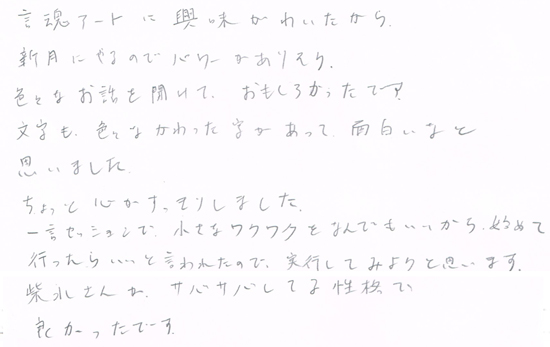 言魂アートに興味がわいたから。
新月にやるのでパワーがありそう。
色々なお話を聞けて、おもしろかったです。
文字も、色々なかわった字があって、面白いなと
思いました。
ちょっと心がすっきりしました。
一言セッションで、小さなワクワクをなんでもいいから、始めて
行ったらいいと言われたので、実行してみようと思います。
柴水さんが、サバサバしてる性格で
良かったでーす。